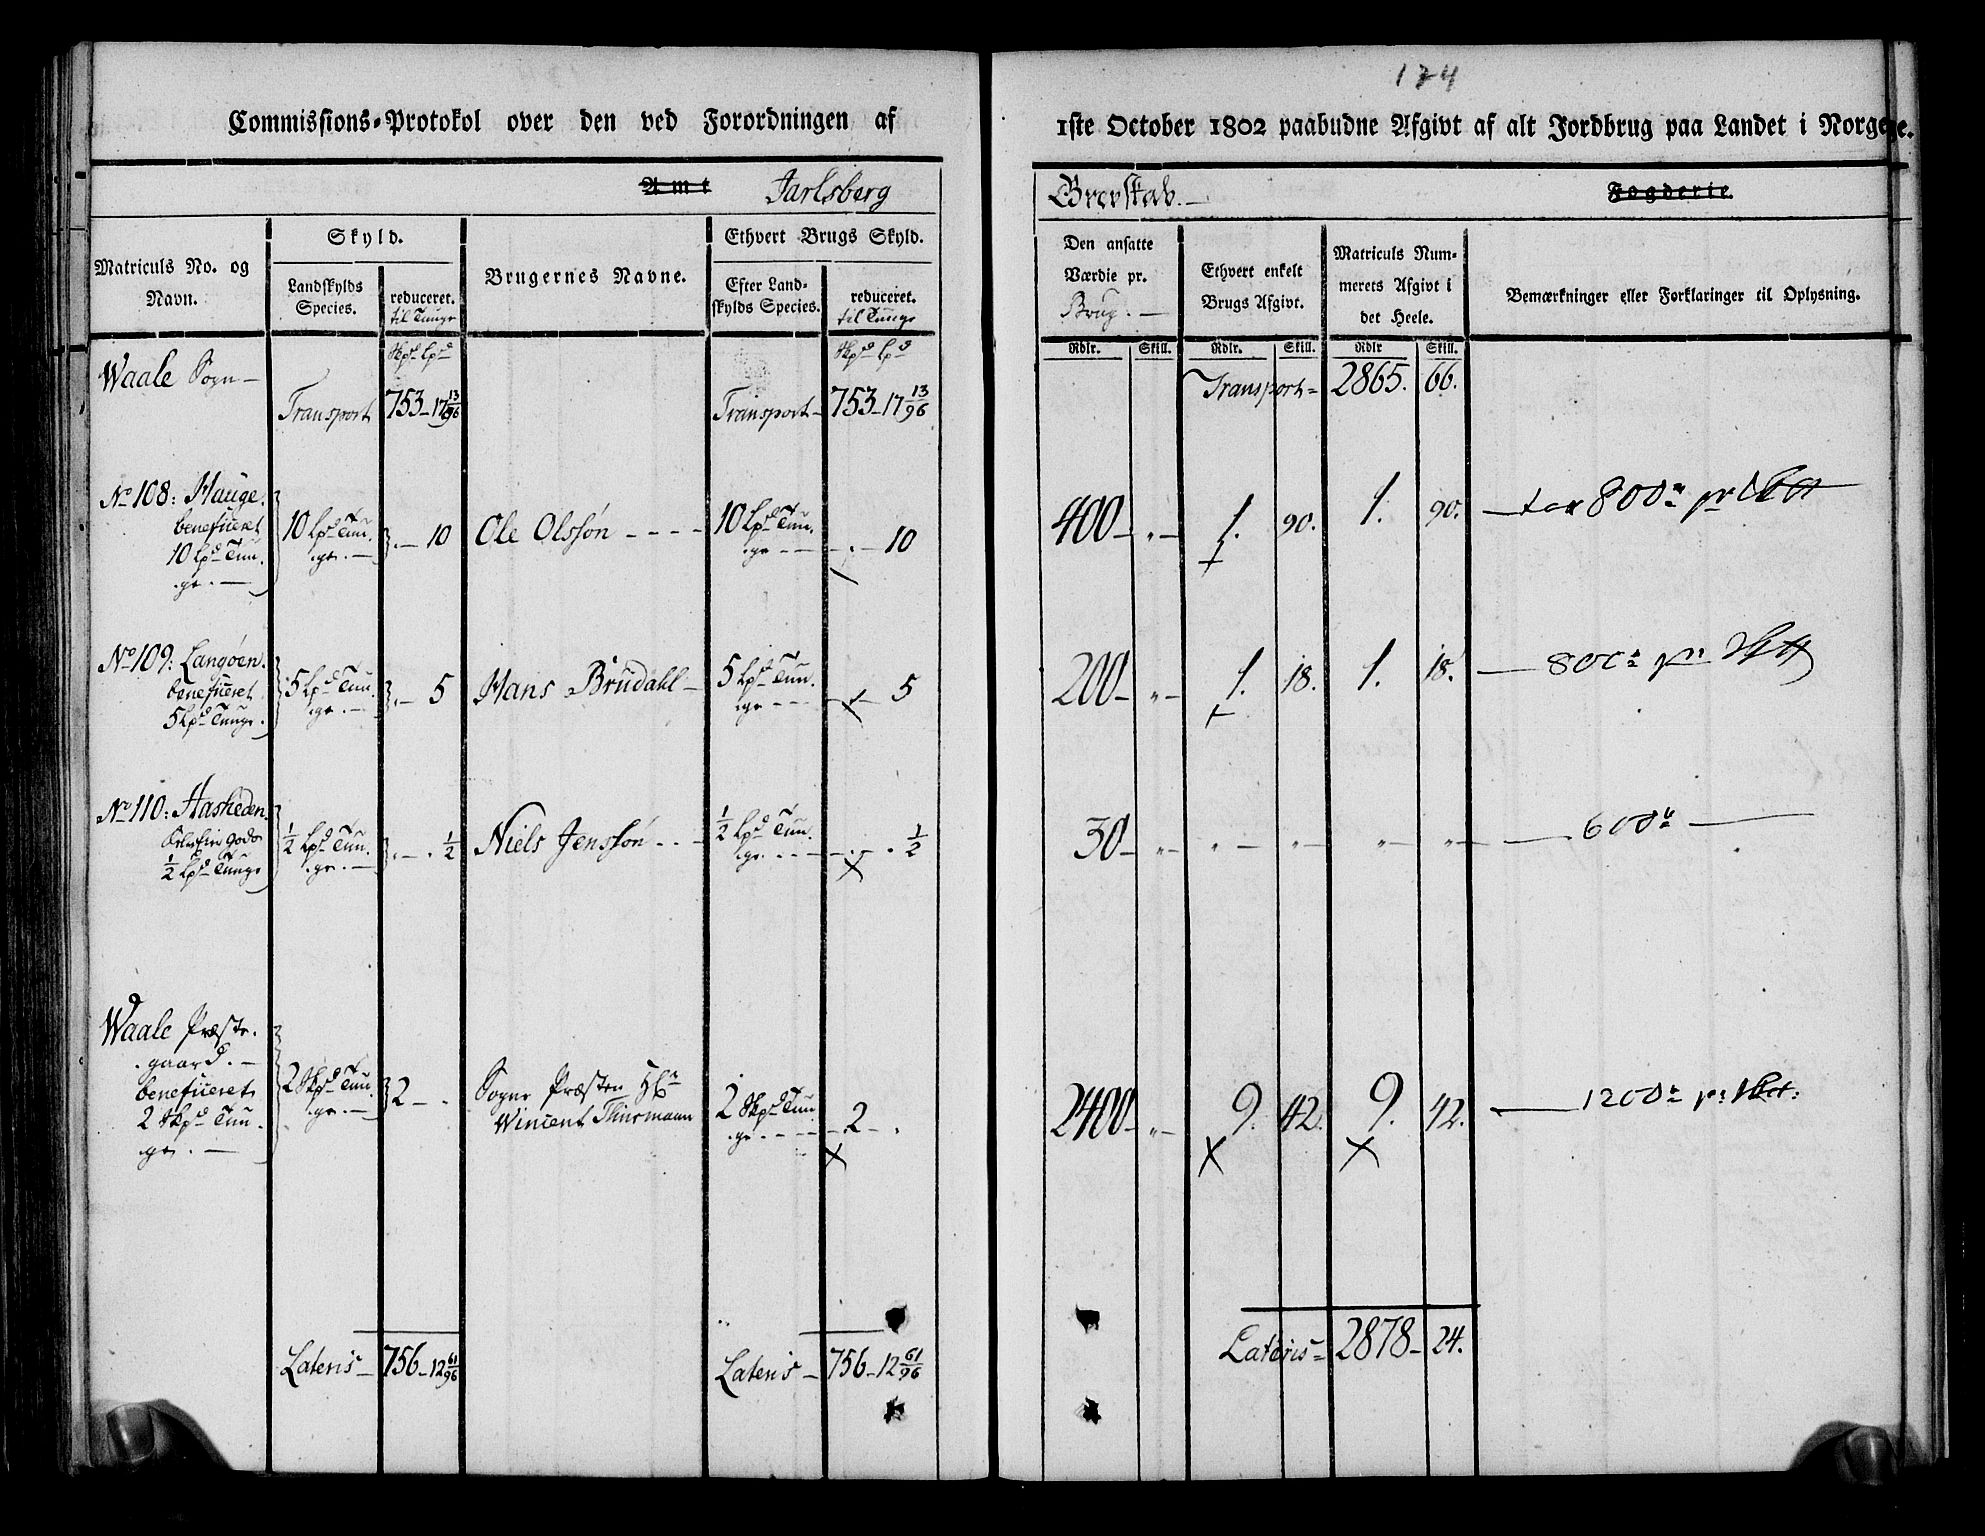 174
Commissions-Protokol over den ved Forordningen af 1ste October 1802 paabudne Afgivt af alt Jordbrug paa Landet i Norge.
Amt Jarlsberg Grevskab. Fogderie.
Matriculs No. og Navn.
Skyld.
Landskylds Species.
reduceret. til Tunge
Brugernes Navne.
Ethvert Brugs Skyld.
Efter Landskylds Species.
reduceret. til Tunge
Den ansatte Værdie pr. Brug.
Ethvert enkelt Brugs Afgivt.
Matriculs Nummerets Afgivt i det Heele.
Bemærkninger eller Forklaringer til Oplysning.
Skpd Lpd
Skpd Lpd
Rdlr. Skill. Rdlr. Skill. Rdlr Skill.
Waale Sogn
Transport 753 - 17 13/96 Transport 753 - 17 13/96 Transport 2865. 66.
No 108: Hauge.
beneficeret
10 Lpd Tun.
ge.
10 Lpd Tun.
ge.
10
Ole Olssøn
10 Lpd Tun.
ge
10
400 1. 90. 1. 90. 800
No 109: Langøen.
beneficeret
5 Lpd Tunge.
5 Lpd Tun.
ge.
5
Hans Brudahl
5 Lpd Tun.
ge
5
200 1. 18. 1. 18. 800
No 110: Aasheden.
Godz
1/2 Lpd Tunge
1/2 Lpd Tun.
ge.
1/2
Niels Jenssøn
1/2 Lpd Tun.
ge.
1/2
30 600
Waale Præste.
gaard.
beneficeret
2 Skpd Tun.
ge.
2 Skpd Tun.
ge.
2
Sogne Præsten Hr
Wincent Thurmann
2 Skpd Tun
ge.
2
2400 9. 42. 9. 42. 1200
Lateris 756 - 12 61/96 Lateris 756 - 12 61/96 Lateris 2878 - 24.